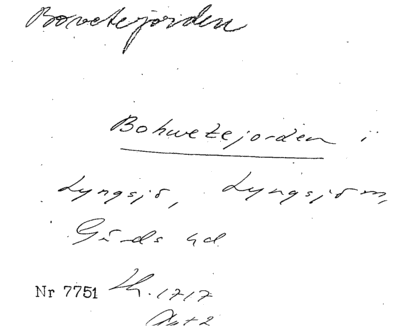 Bovetejorden
Bohwetejorden i
Lyngsjö, Lyngsjö m,
Gärds hd
Nr 7751 Lh. 1717
Akt 2